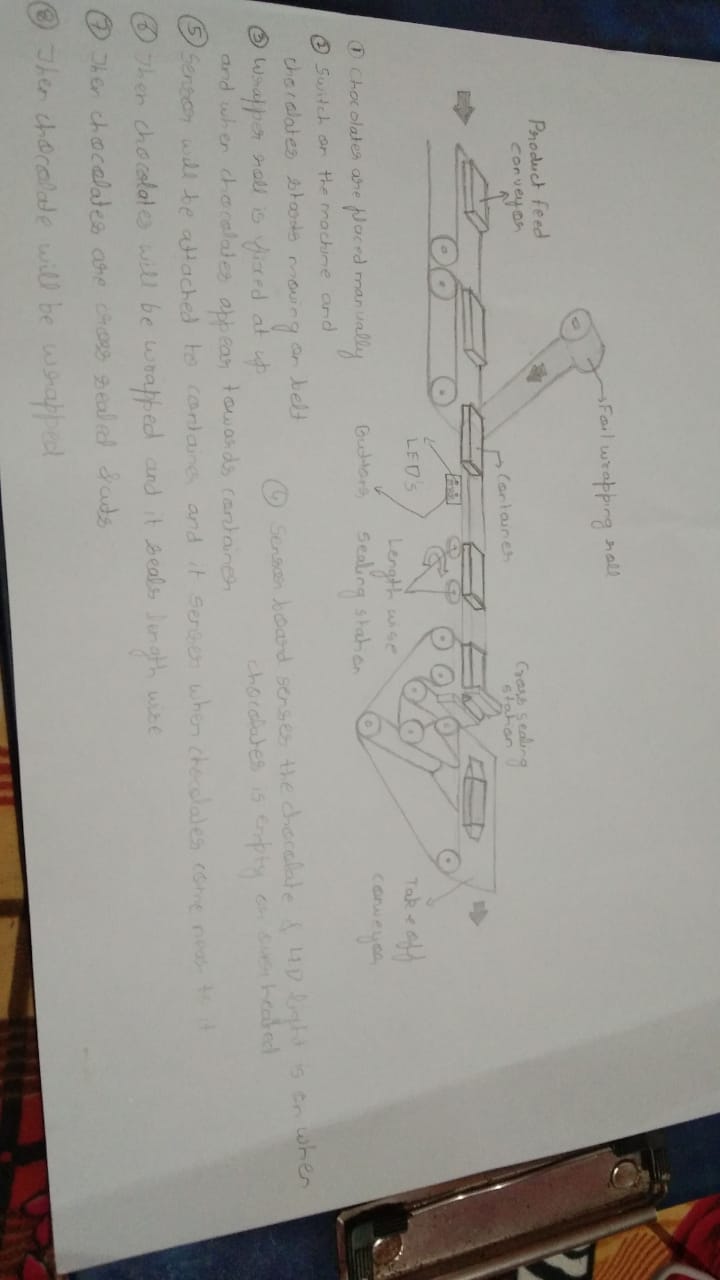 Foil wrapping roll
Product feed
conveyor
Container
Cross sealing
station
LED's
Buttons
Length wise
Sealing station
Take off
conveyor
① Chocolates are placed manually
② Switch on the machine and
chocolates starts moving on belt
③ Wrapper roll is fixed at up
and when chocolates appear towards container
④ Sensor board senses the chocolate & LED light is on when
chocolates is empty or over heated
⑤ Sensor will be attached to container and it senses when chocolates come near to it
⑥ Then chocolates will be wrapped and it seals length wise
⑦ Then chocolates are cross sealed & cuts
⑧ Then chocolate will be wrapped